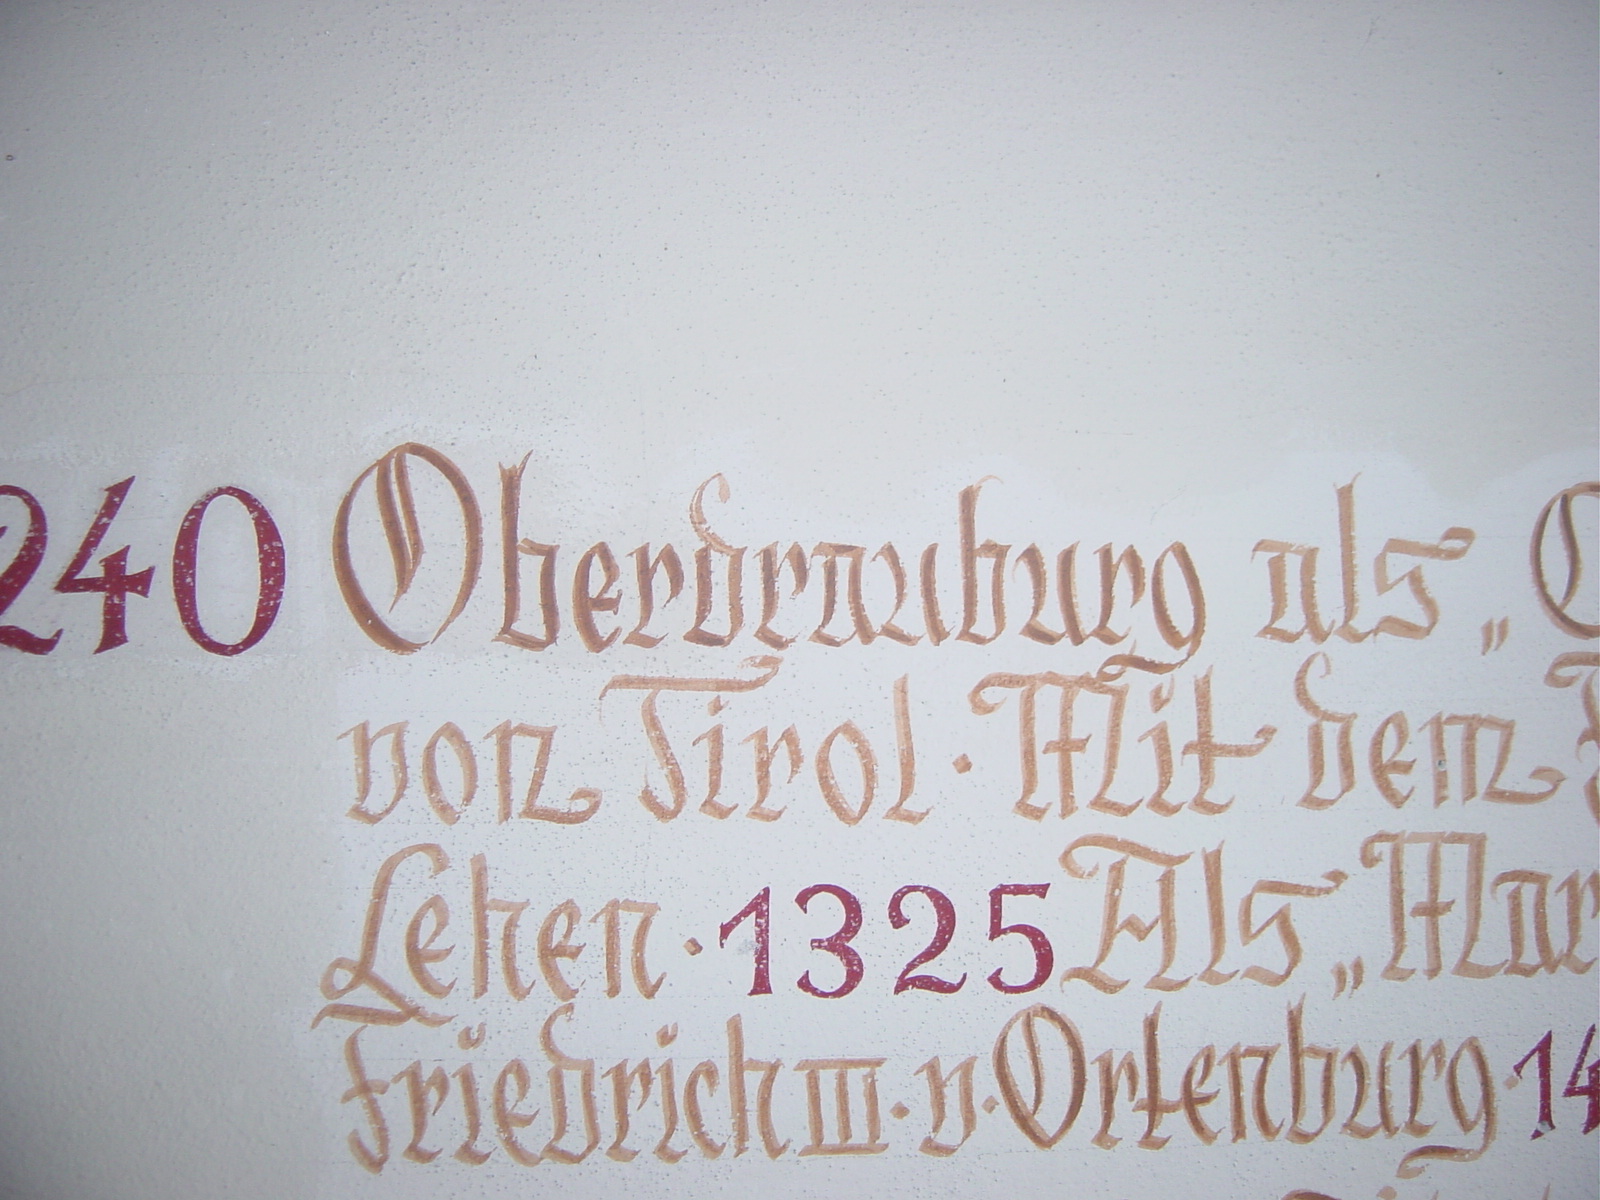 240 Oberdrauburg als „
von Tirol · Mit dem
Lehen · 1325 Als „Mar
Friedrich III · v · Ortenburg · 14